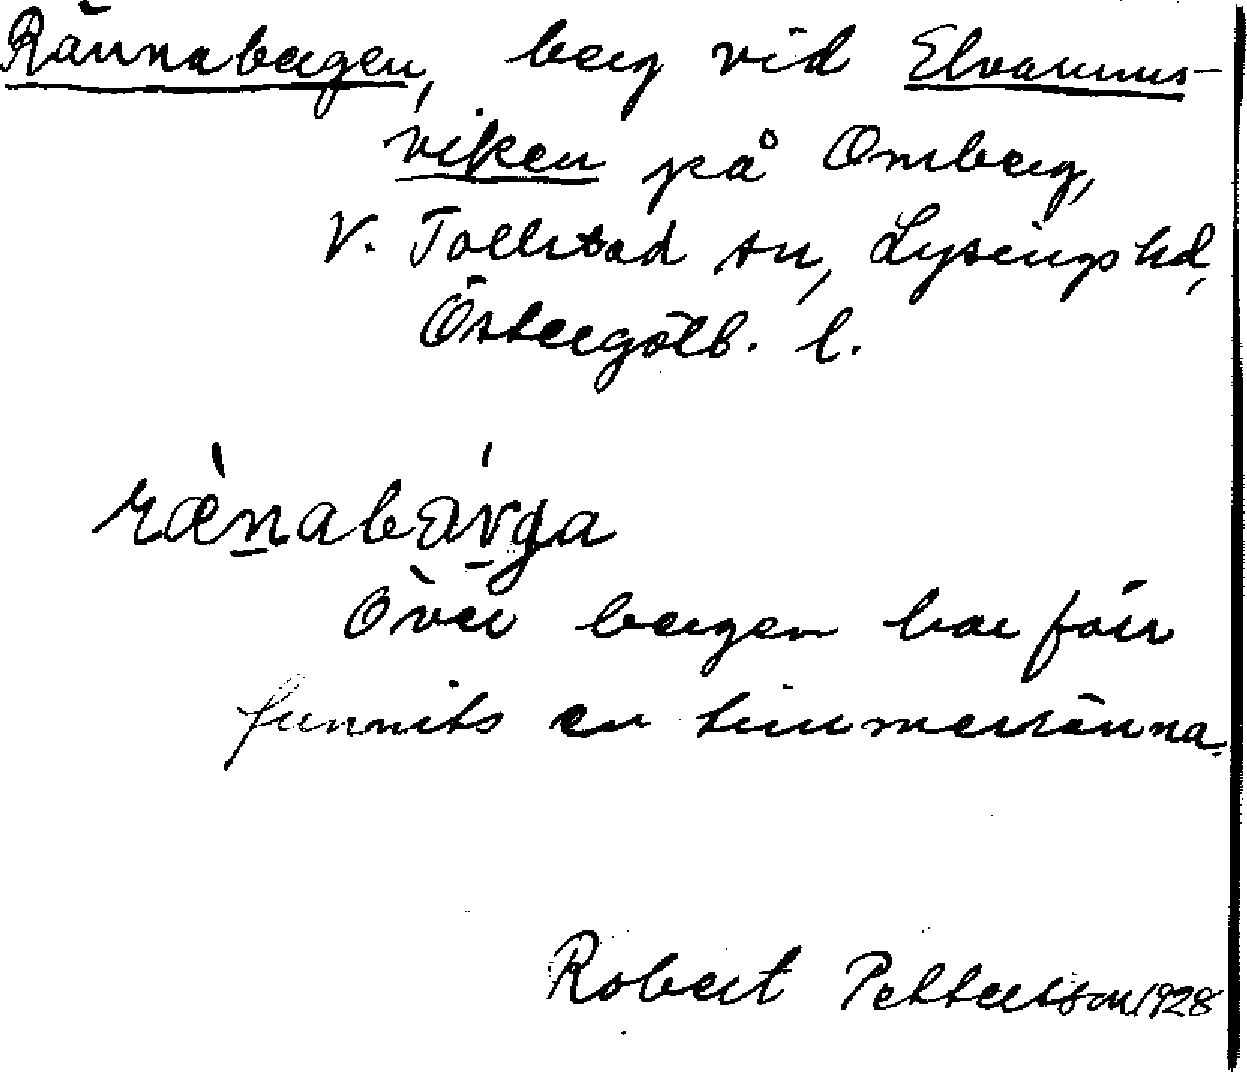 Rännabergen, berg vid Elvarums-
viken på Omberg,
V. Tollstad sn, Lysings hd,
Östergötl. l.
ræ̀nabä́rga
Över bergen har förr
funnits en timmerränna.
Robert Pettersson 1928